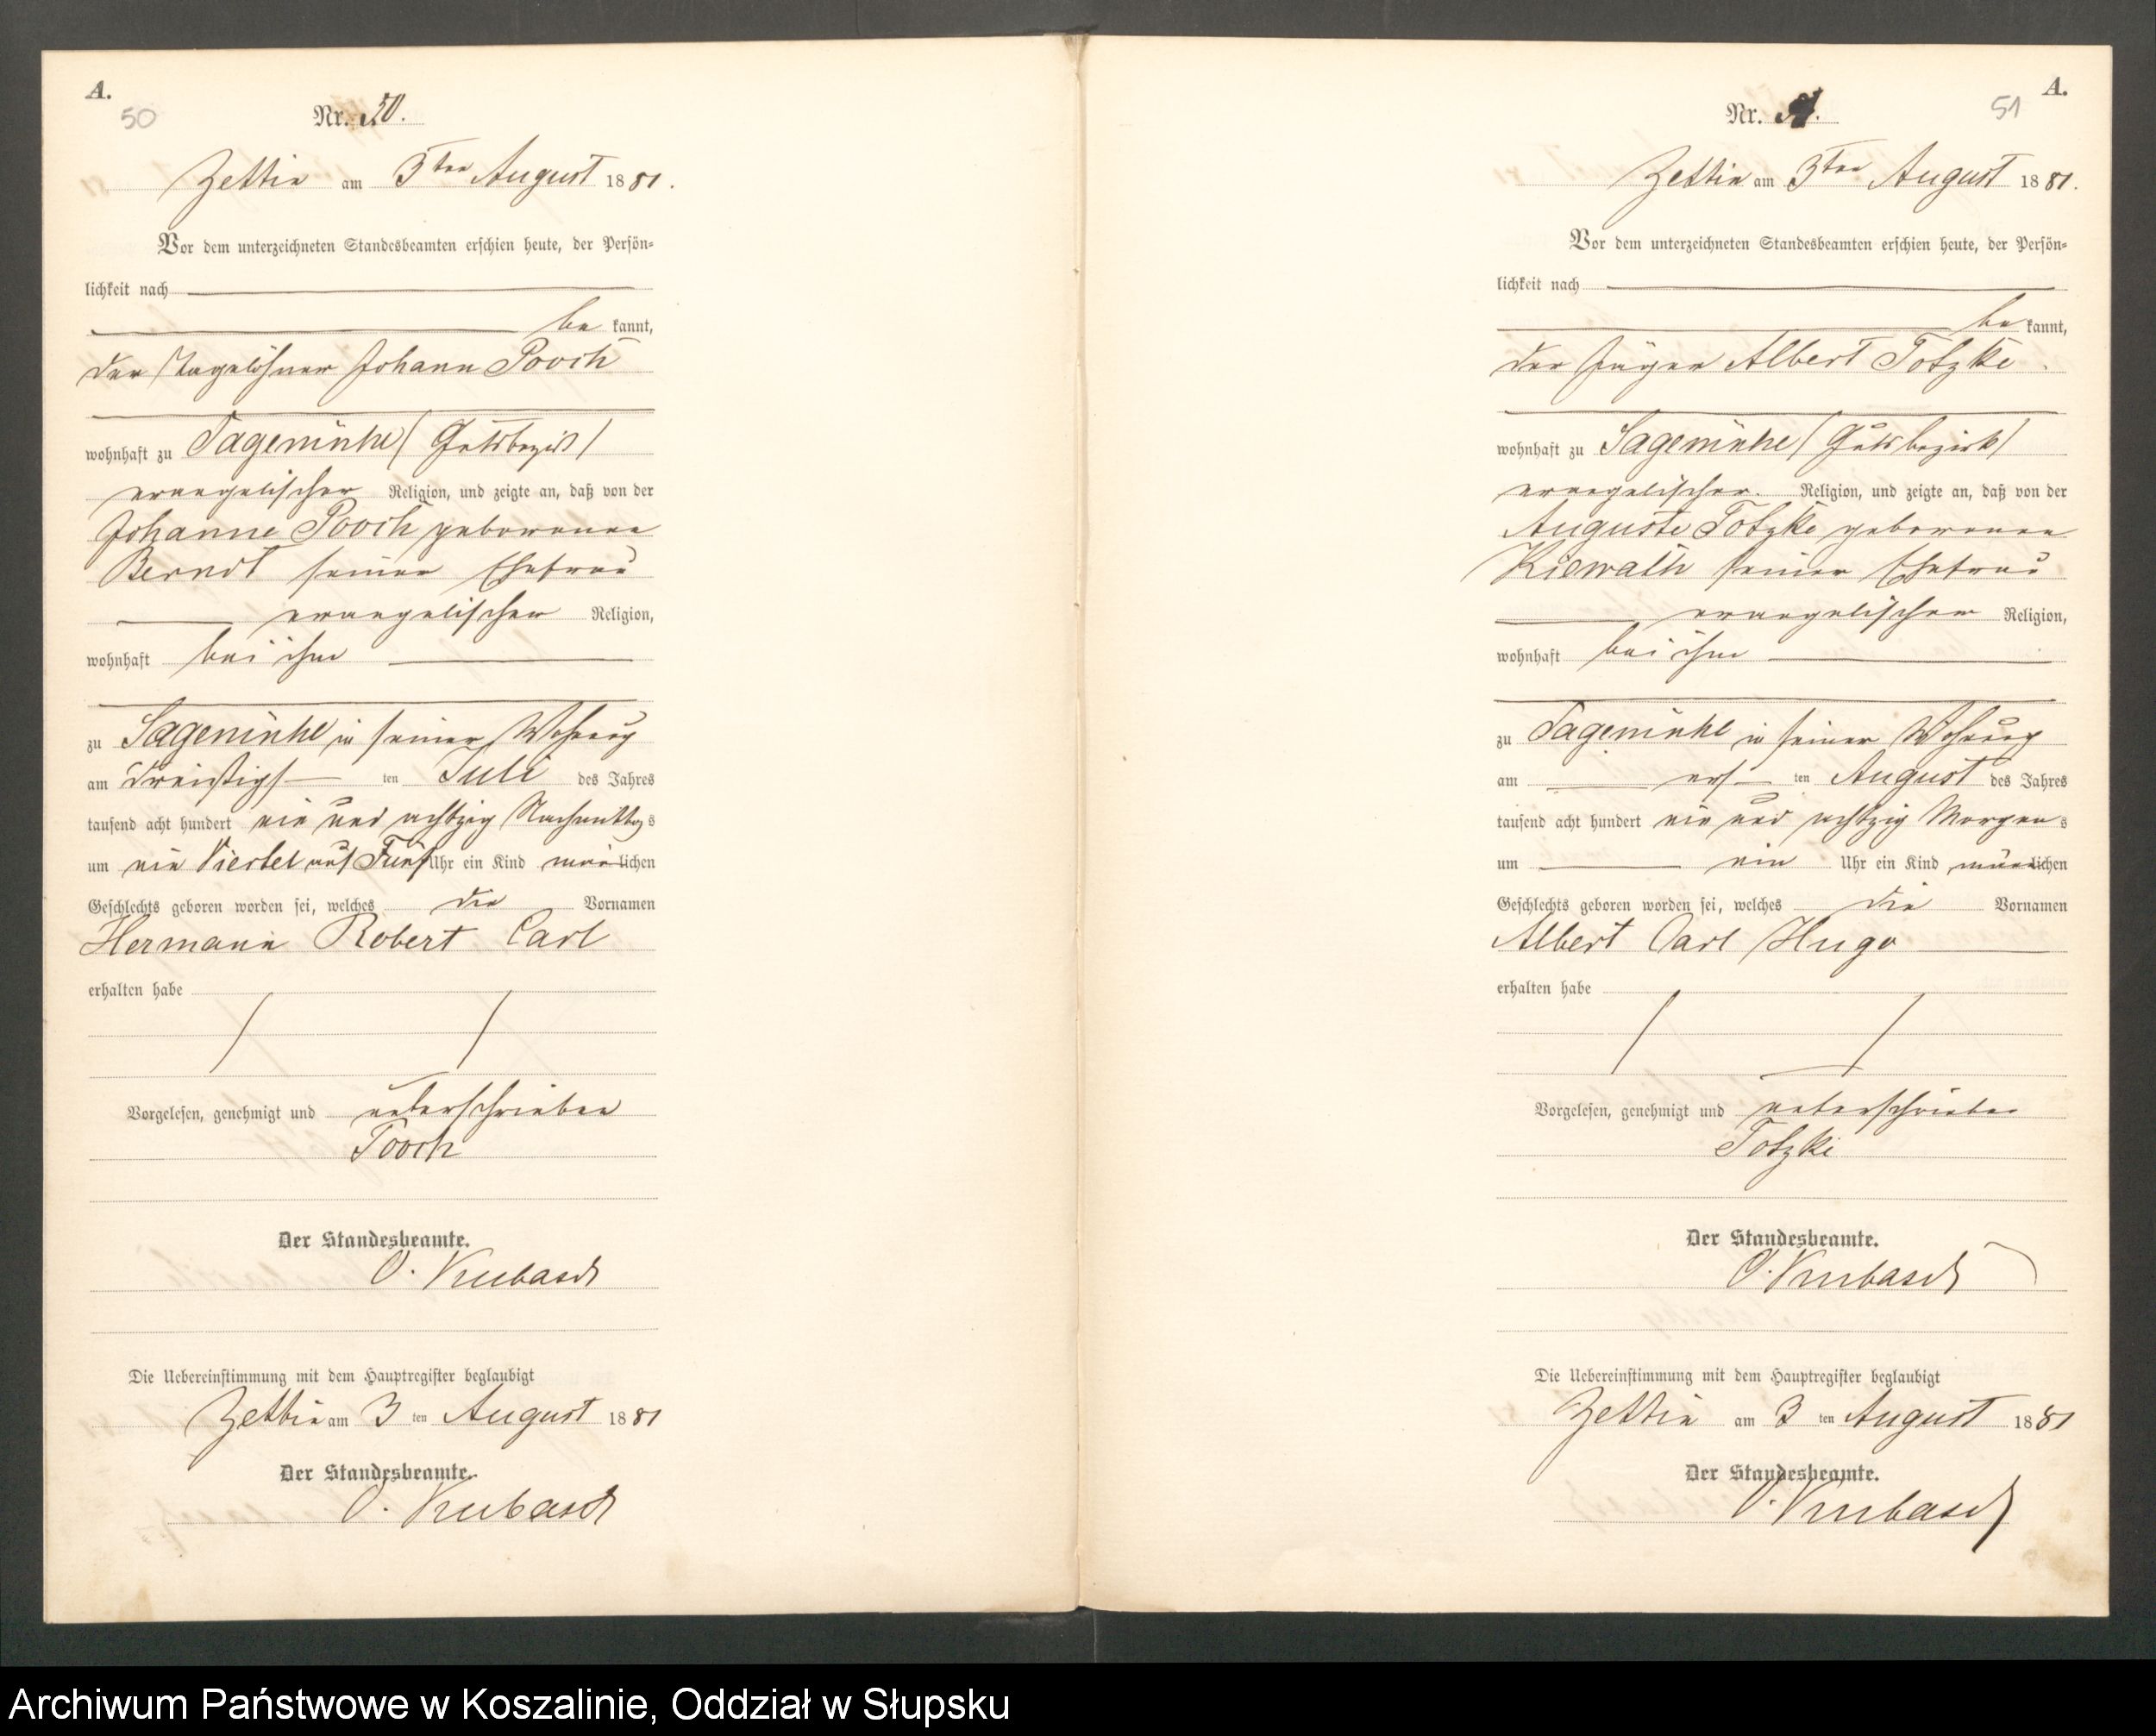 A.
50
Nr. 50.
Zettin am 3ten August 1881.
Vor dem unterzeichneten Standesbeamten erschien heute, der Persön=
lichkeit nach
be kannt,
der Tagelöhner Johann Pooch
wohnhaft zu Sagemühle (Gutsbezirk)
evangelischer Religion, und zeigte an, daß von der
Johanne Pooch geborenen
Berndt seiner Ehefrau
evangelischer Religion,
wohnhaft bei ihm
zu Sagemühle in seiner Wohnung
am dreißigsten Juli des Jahres
tausend acht hundert ein und achtzig Nachmittags
um ein Viertel auf Fünf Uhr ein Kind männlichen
Geschlechts geboren worden sei, welches die Vornamen
Hermann Robert Carl
erhalten habe
Vorgelesen, genehmigt und unterschrieben
Pooch
Der Standesbeamte.
O. Kubasch
Die Uebereinstimmung mit dem Hauptregister beglaubigt
Zettin am 3 ten August 1881
Der Standesbeamte.
O. Kubasch
A.
51
Nr. 51.
Zettin am 3ten August 1881.
Vor dem unterzeichneten Standesbeamten erschien heute, der Persön=
lichkeit nach
be kannt,
der Jäger Albert Totzke
wohnhaft zu Sagemühle (Gutsbezirk)
evangelischer Religion, und zeigte an, daß von der
Auguste Totzke geborenen
Kiewath seiner Ehefrau
evangelischer Religion,
wohnhaft bei ihm
zu Sagemühle in seiner Wohnung
am ersten August des Jahres
tausend acht hundert ein und achtzig Morgens
um ein Uhr ein Kind männlichen
Geschlechts geboren worden sei, welches die Vornamen
Albert Carl Hugo
erhalten habe
Vorgelesen, genehmigt und unterschrieben
Totzke
Der Standesbeamte.
O. Kubasch
Die Uebereinstimmung mit dem Hauptregister beglaubigt
Zettin am 3 ten August 1881
Der Standesbeamte.
O. Kubasch
Archiwum Państwowe w Koszalinie, Oddział w Słupsku